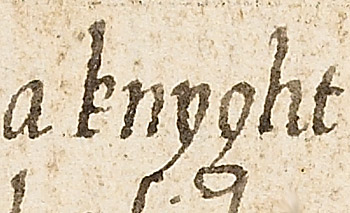 a knyght